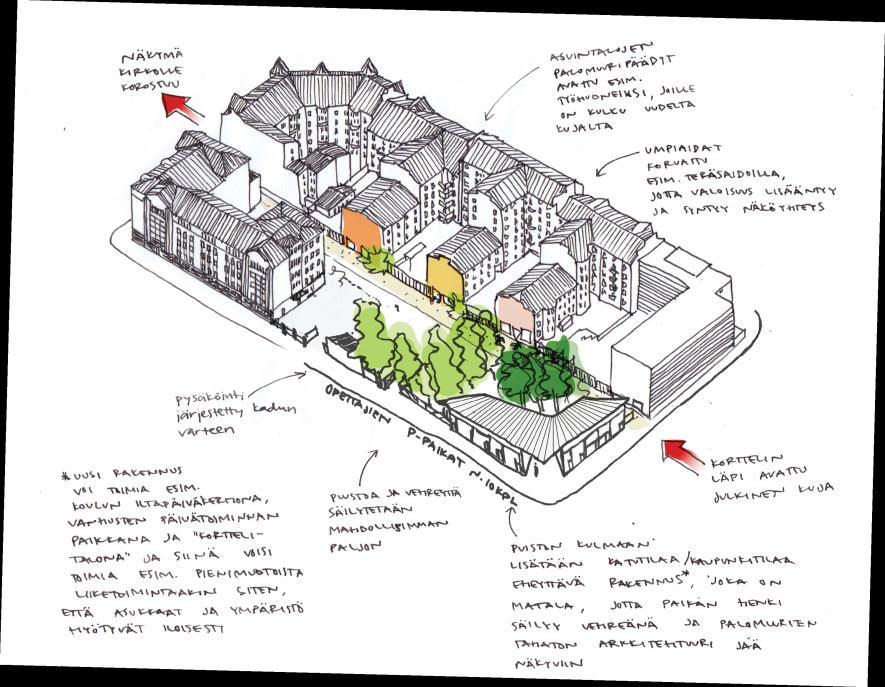 NÄKYMÄ
KIRKOLLE
KOROSTUU
ASUINTALOJEN
PALOMUURIPÄÄDYT
AVATTU ESIM.
TYÖHUONEIKSI, JOILLE
ON KULKU UUDELTA
KUJALTA
UMPIAIDAT
KORVATTU
ESIM. TERÄSAIDOILLA,
JOTTA VALOISUUS LISÄÄNTYY
JA SYNTYY NÄKÖYHTEYS
pysäköinti
järjestetty kadun
varteen
OPETTAJIEN P-PAIKAT N. 10KPL
KORTTELIN
LÄPI AVATTU
JULKINEN KUJA
* UUSI RAKENNUS
VOI TOIMIA ESIM.
KOULUN ILTAPÄIVÄKERHONA,
VANHUSTEN PÄIVÄTOIMINNAN
PAIKKANA JA "KORTTELI-
TALONA" JA SIINÄ VOISI
TOIMIA ESIM. PIENIMUOTOISTA
LIIKETOIMINTAAKIN SITEN,
ETTÄ ASUKKAAT JA YMPÄRISTÖ
HYÖTYVÄT ILOISESTI
PUUSTOA JA VEHREYTTÄ
SÄILYTETÄÄN
MAHDOLLISIMMAN
PALJON
PUISTON KULMAAN
LISÄTÄÄN KATUTILAA/KAUPUNKITILAA
EHEYTTÄVÄ RAKENNUS*, JOKA ON
MATALA, JOTTA PAIKAN HENKI
SÄILYY VEHREÄNÄ JA PALOMUURIEN
TAHATON ARKKITEHTUURI JÄÄ
NÄKYVIIN